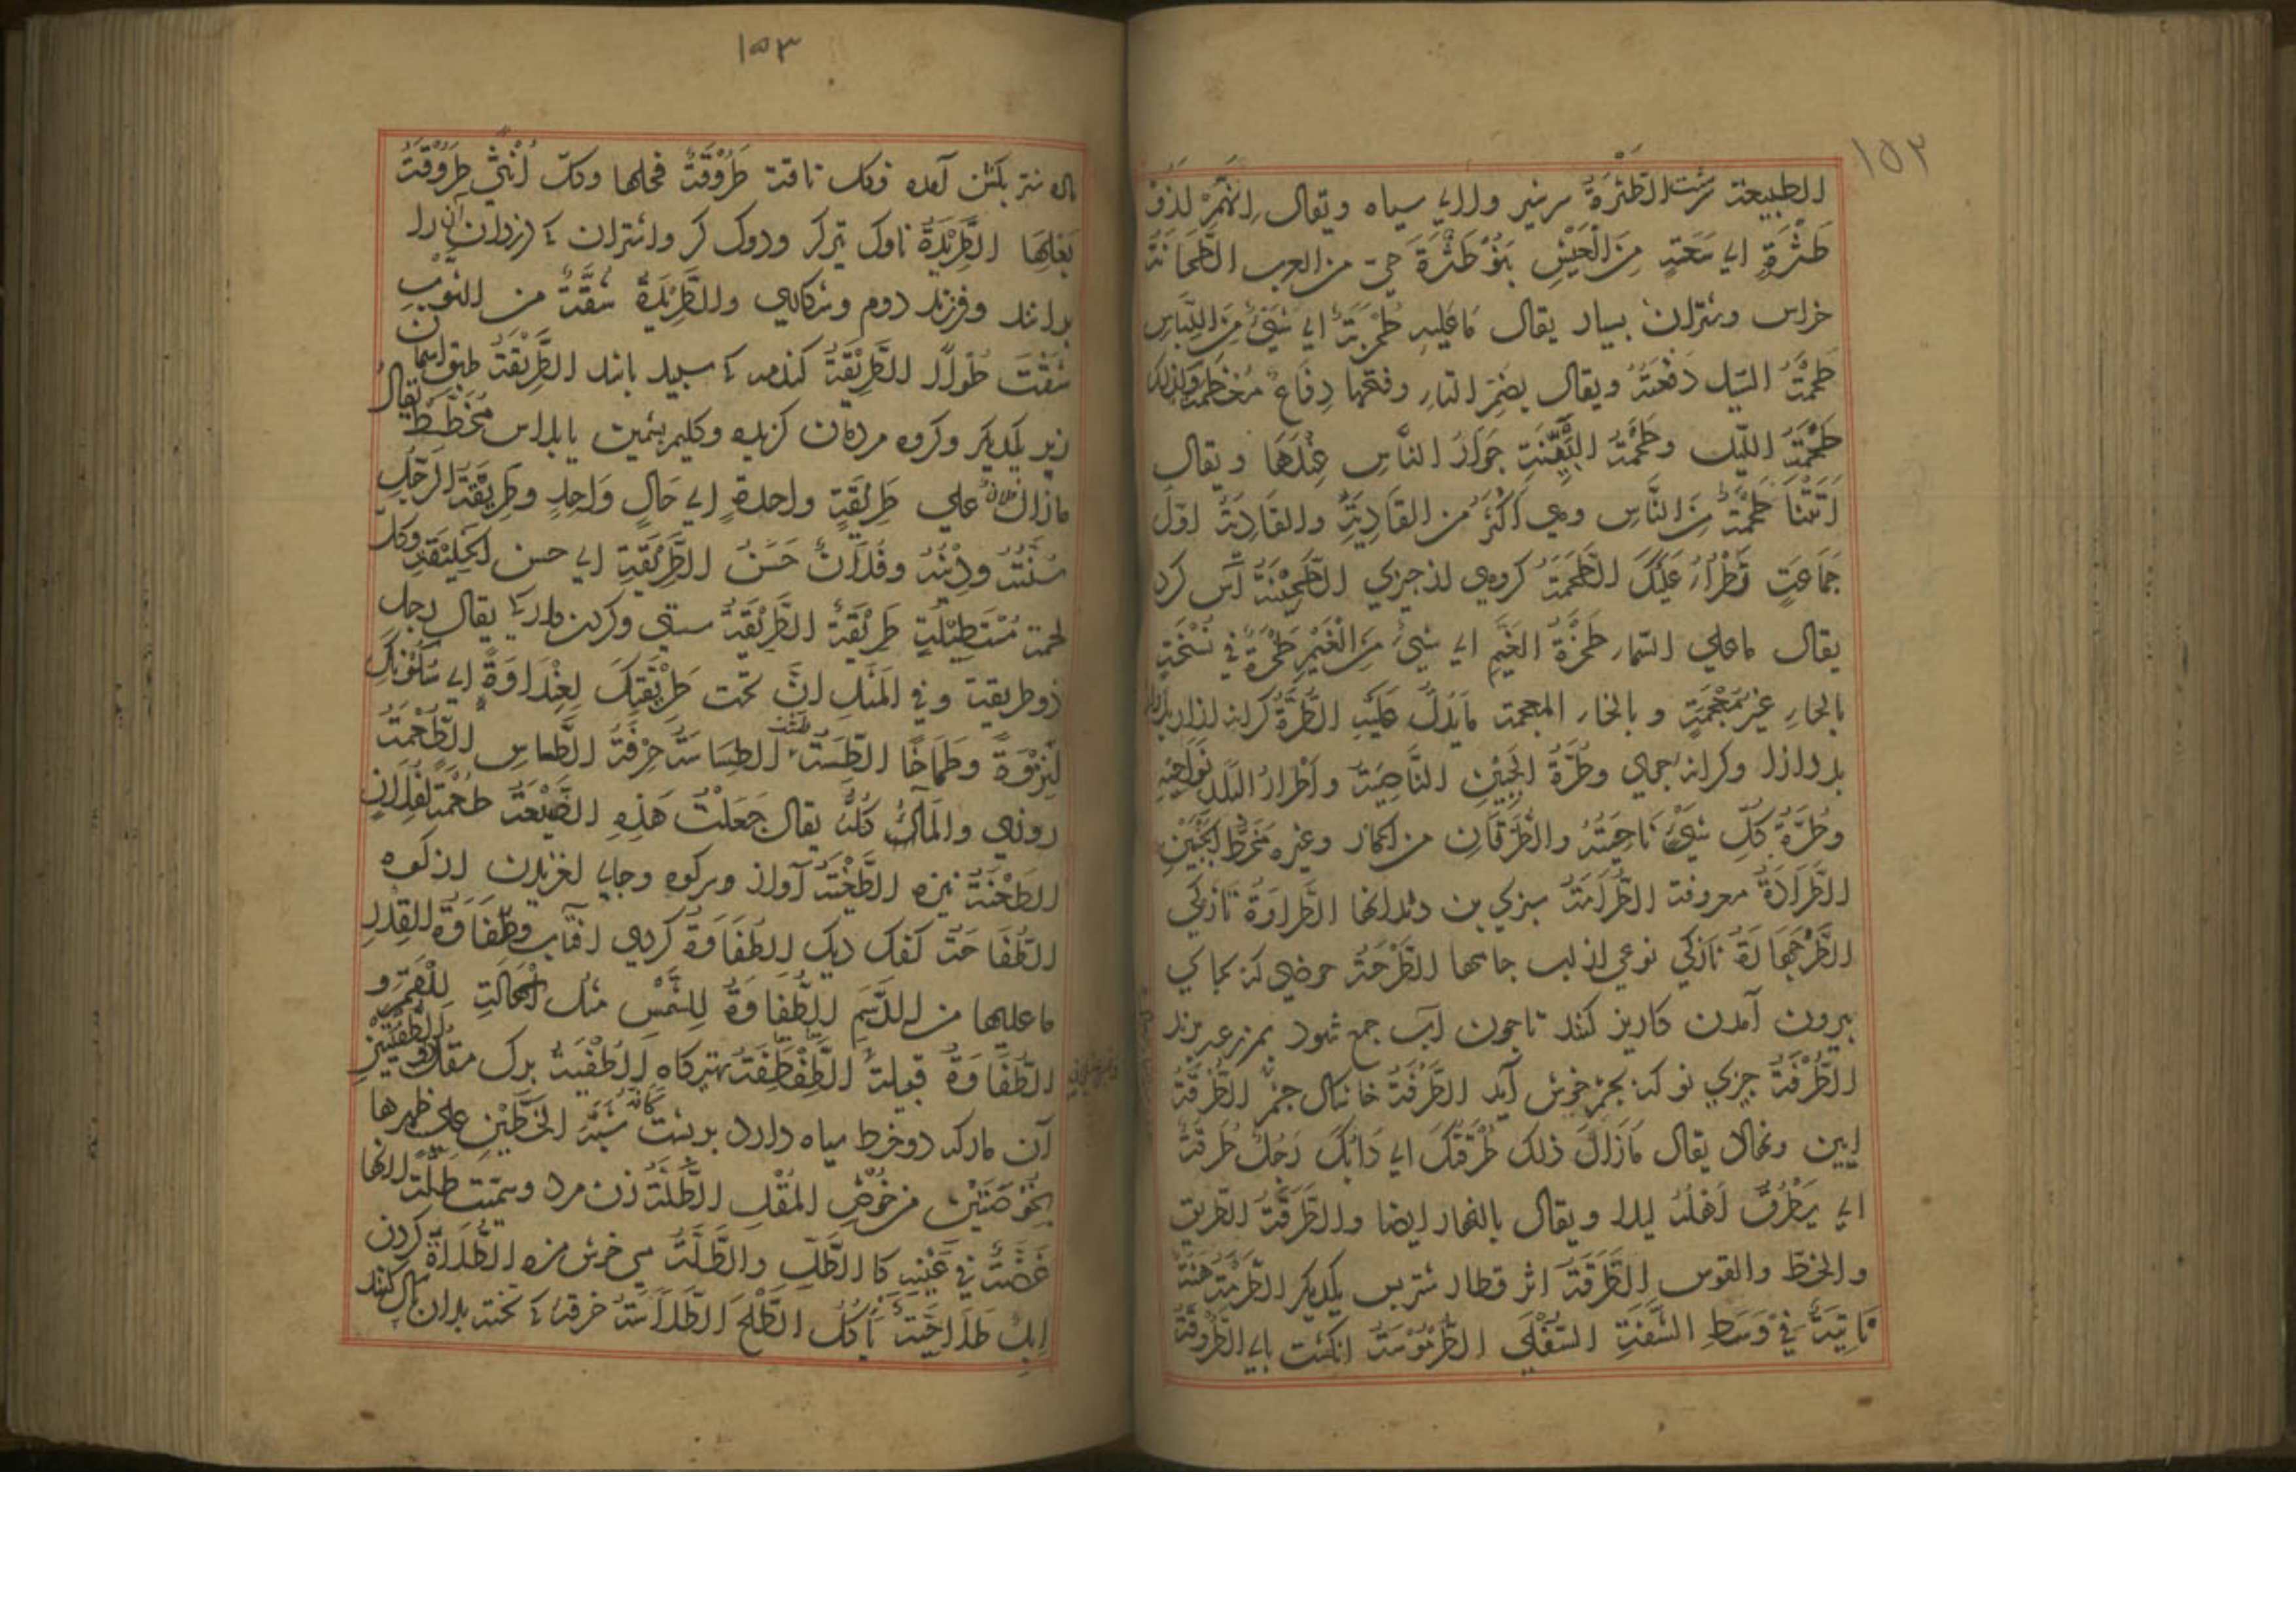 ١٥٢
الطبيعة سرشت الطَّثْرَةُ سر شیر ولای سیاه ويقال اِنَّهُمْ لذو
طَثْرَةٍ اي سَعَةٍ مِنَ الْعَيْشِ بَنُوْ طَثْرَةَ حيّ من العرب الطَّحَانَةُ
خراس وشتران بسيار يقال مَا عَلَيهِ طُحْرُبَةٌ اي شَيْءٌ مِنَ اللِّبَاسِ
طَحْمَةُ السّيل دَفْعَتُهُ ويقال بضمّ الطاء وفتحها دِفَاعُ مُعْظَمِهِ وكذلك
طَحْمَةُ اللّيل وطَحْمَةُ الفِتْنَةِ جَوَلَانُ النَّاسِ عِنْدَهَا ويقال
اَتَتْنَا طَحْمَةٌ مِنَ النَّاسِ وهي اَكْثَرُ من القَادِيَةِ والقَادِيَةُ اوّلُ
جَمَاعَةٍ تَطْرَأُ عَلَيْكَ الطَّحْمَةُ كروهي از چیزی الطَّحِيْنَةُ آس کرد
يقال ما علي السّماء طَحْرَةُ الغَيْمِ اي شَيْءٌ مِنَ الْغَيْمِ طَحْرَةٌ في نُسْخَةٍ
بالحاء غير مُعْجَمَةٍ وبالخاء المعجمة مَا يَدُلُّ عَلَيْهِ الطُّرَّةُ كرانه
وكرانه جوي وطُرَّةُ الجَبِيْنِ النَّاصِيَةُ واَطْرَارُ البِلَادِ نَوَاحِيْهِ
وطُرَّةُ كلِّ شَيْءٍ نَاحِيَتُهُ والطُّرَّتَانِ من الحمار وغيره مَخَطُّ الْجَنْبَيْنِ
الطَّرَّادَةُ معروفة الطُّرَامَةُ سبزي بن دندانها الطَّرَاوَةُ تازكي
الطَّرْجَهَالَةُ نازكي نوعي از جامها الطَّرْحَةُ حوضي كه بجاي
بيرون آمدن كاريز كنند تا چون آب جمع شود بمزرعه برند
الطُّرْفَةُ چيزي نو كه بچشم خوش آيد الطَّرْفَةُ خانهاك چشم الطُّرْقَةُ
آيين ونهال يقال مَازَالَ ذلك طُرْقَتَكَ اي دَابَكَ رَجُلٌ طُرَقَةٌ
اي يَطْرُقُ اَهْلَهُ ليلا ويقال بالنهار ايضا والطَّرْقَةُ الطريق
والخطّ والقوس الطَّرَقَةُ اثر قطار شتر پس يكديكر الطُّرْمَةُ هَنَةٌ
نَاتِيَةٌ فِيْ وَسَطِ الشَّفَةِ السُّفْلَي الطُّرْمُوْسَةُ انكشت الطَّرُوْقَةُ
١٥٣
ماده شتر بكشن آمده وكل ناقة طَرُوْقَةُ فحلها وكلّ اُنْثَي طَرُوْقَةُ
بَعْلِهَا الطَّرِيْدَةُ ناوك تيركر ودوك كر واشتران كه از دزدان آنرا
برانند وفرزند دوم وشكاري والطَّرِيْدَةُ شُقَّةٌ من الثَّوْبِ
شُقَّتْ طُوْلًا الطَّرِيْقَةُ كندمه كه سپيد باشد الطَّرِيْقَةُ طبق آسمان
زبر يكديكر وكروه مردمان كزيده وكليم پشمين يا پلاس مُخَطَّط يقال
مازال فلان علي طَرِيْقَةٍ واحدةٍ اي حَالٍ وَاحِدٍ وطَرِيْقَةُ الرّجُلِ
سُنَّتُهُ ودِيْنُهُ وفُلَانٌ حَسَنُ الطَّرِيْقَةِ اي حسن الْخَلِيْقَةِ وكل
لحمة مُسْتَطِيْلَةٍ طَرِيْقَةٌ الطِّرِّيْقَةُ سستي يقال رجل
ذو طريقة وفي المَثَلِ اِنَّ تحت طِرِّيْقَتِكَ لَعِنْدَاوَةً اي سُكُوْنِكَ
لَنَزْوَةً وطِمَاحًا الطَّسَّةُ طشت الطِّسَاسَةُ حِرْفَةُ الطَّسَّاسِ الطُّعْمَةُ
روزي والمَأْكَلُ كُلُّهُ يقال جَعَلْتُ هَذِهِ الضَّيْعَةَ طُعْمَةً لِفُلَانٍ
الطَّعْنَةُ نيزه الطَّغْيَةُ آواز وسر كوه وجاي لغزيدن از كوه
الطُّفَاحَةُ كفك ديك الطُّفَاوَةُ كردي آفتاب وطُفَاوَةُ القِدْرِ
ما عليها من الدَّسَمِ الطُّفَاوَةُ لِلشَّمْسِ مثل الْهَالَةِ لِلْقَمَرِ و
الطُّفَاوَةُ قبيلة الطَّفْطَفَةُ تهيكاه الطُّفْيَةُ برك مقل وذوالطُّفْيَتَيْنِ
آن مار كه دو خط سياه دارد بر پشت كانه شَبَّهَ الخَطَّيْنِ علي ظهرها
بِخُوْصَتَيْنِ من خُوْصِ المُقْلِ الطَّلَّةُ زن مرد وسمّيت طلّة لانها
غَضَّةٌ فِيْ عَيْنِهِ كَالطَّلِّ والطَّلَّةُ مي خوش مزه الطُّلَاةُ كردن
ابل طَلَاحِيَّةٌ تَأْكُلُ الطَّلْحَ الطَّلَّاسَةُ خرقه كه تخته بدان پاك كنند